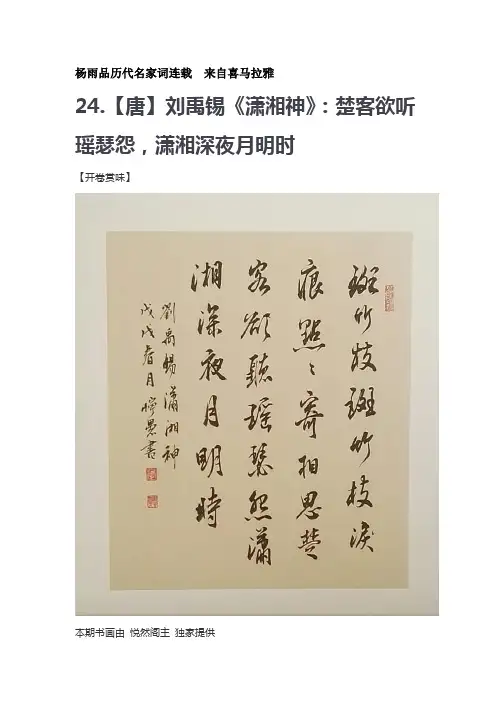 杨雨品历代名家词连载 来自喜马拉雅
24.【唐】刘禹锡《潇湘神》：楚客欲听
瑶瑟怨，潇湘深夜月明时
【开卷赏味】
斑竹枝斑竹枝淚
痕點〻寄相思楚
客欲聽瑶瑟怨瀟
湘深夜月明時
劉禹錫瀟湘神
戊戌春月書
本期书画由 悦然阁主 独家提供